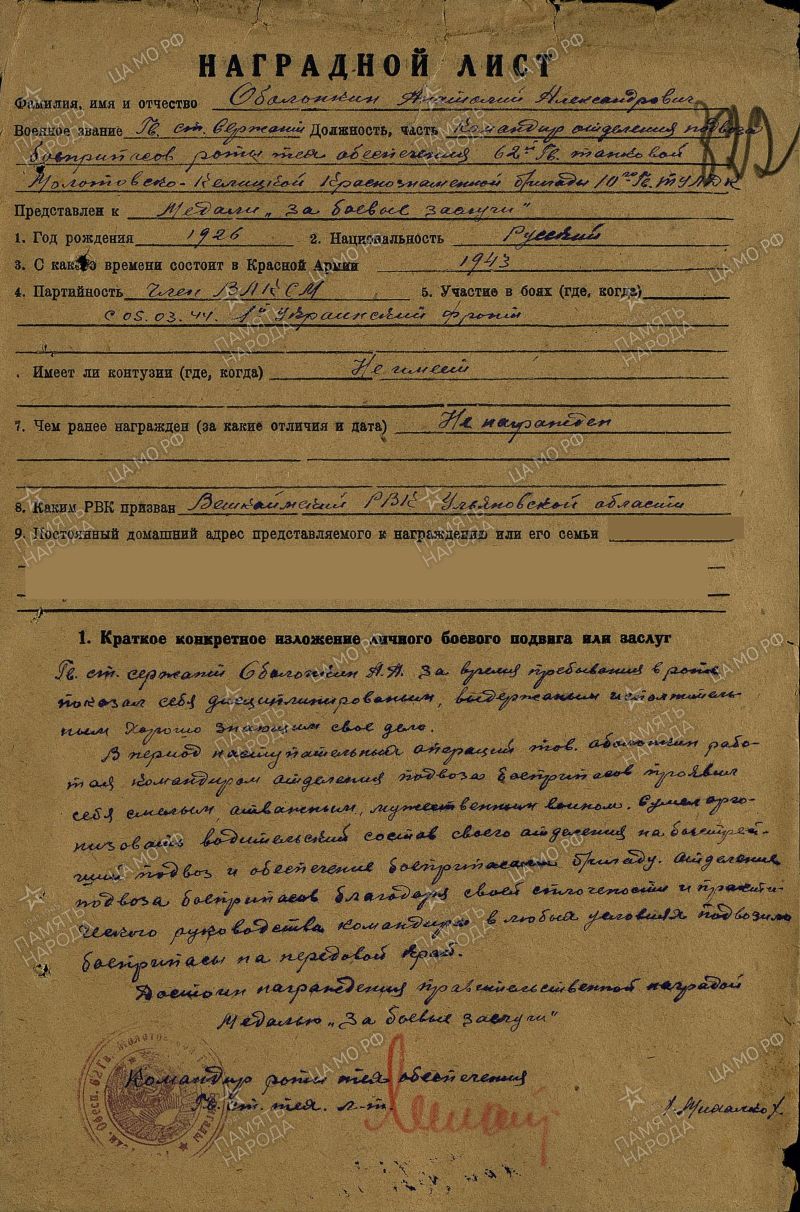 НАГРАДНОЙ ЛИСТ
Фамилия, имя и отчество Оболонкин Анатолий Александрович
Военное звание Гв. ст. сержант Должность, часть Командир отделения подвоза
боеприпасов роты тех обеспечения 62ой Гв. танковой
Молотовско-Келецкой Краснознаменной бригады 10го Гв. ТУЛДК
Представлен к Медали „За боевые заслуги"
1. Год рождения 1926 2. Национальность Русский
3. С какого времени состоит в Красной Армии 1943
4. Партийность Член ВЛКСМ 5. Участие в боях (где, когда)
с 05.03.44. 1й Украинский фронт
. Имеет ли контузии (где, когда) Не имеет
7. Чем ранее награжден (за какие отличия и дата) Не награжден
8. Каким РВК призван Вешкаймский РВК Ульяновской области
9. Постоянный домашний адрес представляемого к награждению или его семьи
1. Краткое конкретное изложение личного боевого подвига или заслуг
Гв. ст. сержант Оболонкин А.А. за время пребывания в роте
показал себя дисциплинированым, выдержаным исполнитель-
ным хорошо знающим свое дело.
В период наступательных операций тов. Оболонкин рабо-
тая командиром отделения подвоза боеприпасов проявил
себя смелым, отважным, мужественным воином. Сумел орга-
низовать водительский состав своего отделения на быстрей-
ший подвоз и обеспечение боеприпасами бригаду. Отделение
подвоза боеприпасов благодаря своей сплочености и практи-
ческого руководства командира в любых условиях подвозило
боеприпасы на передовой край.
Достоин награждения правительственной наградой
Медалью „За боевые заслуги"
Командир роты тех обеспечения
Гв. ст. тех. л-т.
/Михалко/
ПАМЯТЬ НАРОДА
ЦА МО РФ